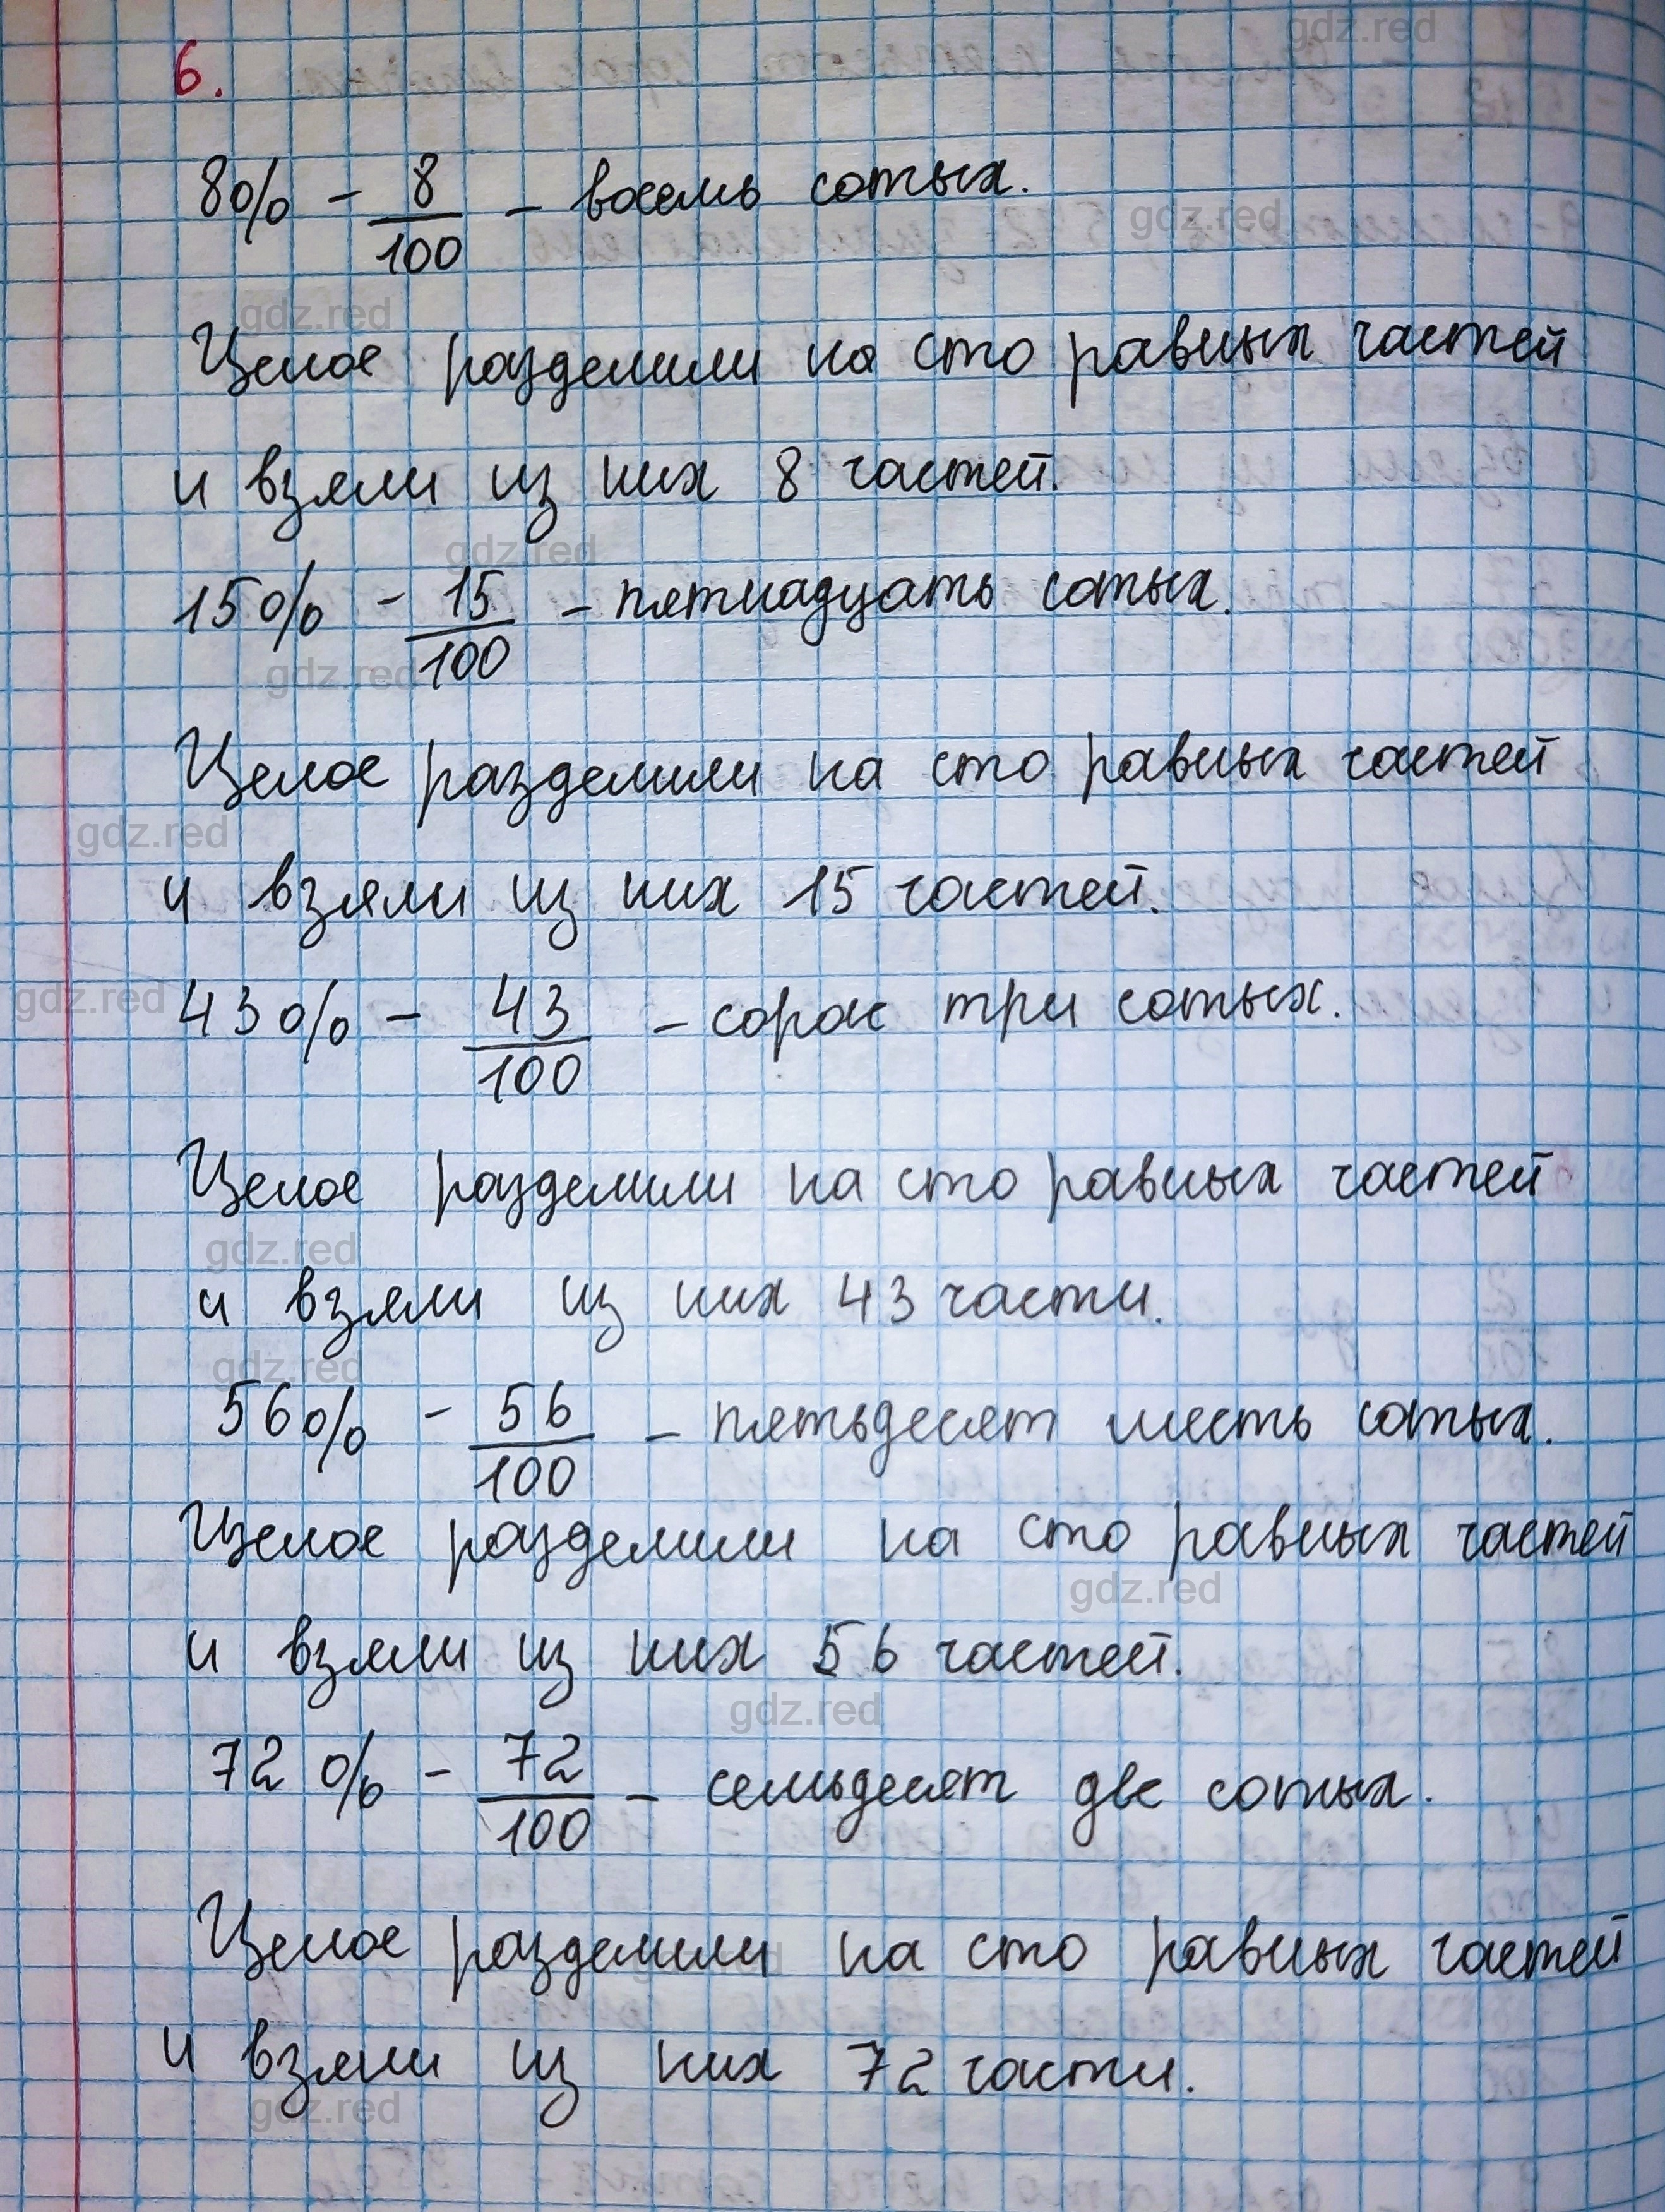 6.
8% - 8/100 - восемь сотых.
Целое разделили на сто равных частей
и взяли из них 8 частей.
15% - 15/100 - пятнадцать сотых.
Целое разделили на сто равных частей
и взяли из них 15 частей.
43% - 43/100 - сорок три сотых.
Целое разделили на сто равных частей
и взяли из них 43 части.
56% - 56/100 - пятьдесят шесть сотых.
Целое разделили на сто равных частей
и взяли из них 56 частей.
72% - 72/100 - семьдесят две сотых.
Целое разделили на сто равных частей
и взяли из них 72 части.
gdz.red
gdz.red
gdz.red
gdz.red
gdz.red
gdz.red
gdz.red
gdz.red
gdz.red
gdz.red
gdz.red
gdz.red